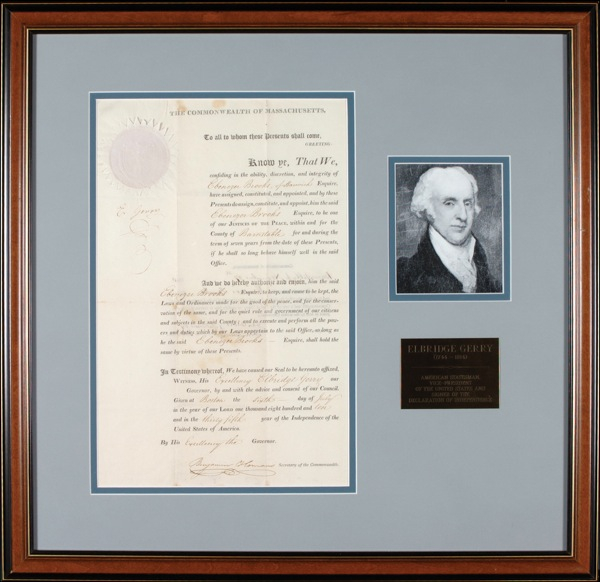 THE COMMONWEALTH OF MASSACHUSETTS,
To all to whom these Presents shall come,
GREETING.
Know ye, That We,
confiding in the ability, discretion, and integrity of
Ebenezer Brooks, of Harwich Esquire,
have assigned, constituted, and appointed, and by these
Presents do assign, constitute, and appoint, him the said
Ebenezer Brooks Esquire, to be one
of our JUSTICES OF THE PEACE, within and for the
County of Barnstable for and during the
term of seven years from the date of these Presents,
if he shall so long behave himself well in the said
Office.
E. Gerry
And we do hereby authorize and enjoin, him the said
Ebenezer Brooks Esquire, to keep, and cause to be kept, the
Laws and Ordinances made for the good of the peace, and for the conservation
of the same, and for the quiet rule and government of our citizens
and subjects in the said County; and to execute and perform all the powers
and duties which by our Laws appertain to the said Office, as long as
he the said Ebenezer Brooks Esquire, shall hold the
same by virtue of these Presents.
In Testimony whereof, We have caused our Seal to be hereunto affixed.
WITNESS, His Excellency Elbridge Gerry our
Governor, by and with the advice and consent of our Council.
Given at Boston the Sixth day of July
in the year of our LORD one thousand eight hundred and ten
and in the thirty fifth year of the Independence of the
United States of America
By His Excellency the Governor.
Secretary of the Commonwealth.
ELBRIDGE GERRY
(1744 - 1814)
AMERICAN STATESMAN,
VICE-PRESIDENT
OF THE UNITED STATES AND
SIGNER OF THE
DECLARATION OF INDEPENDENCE